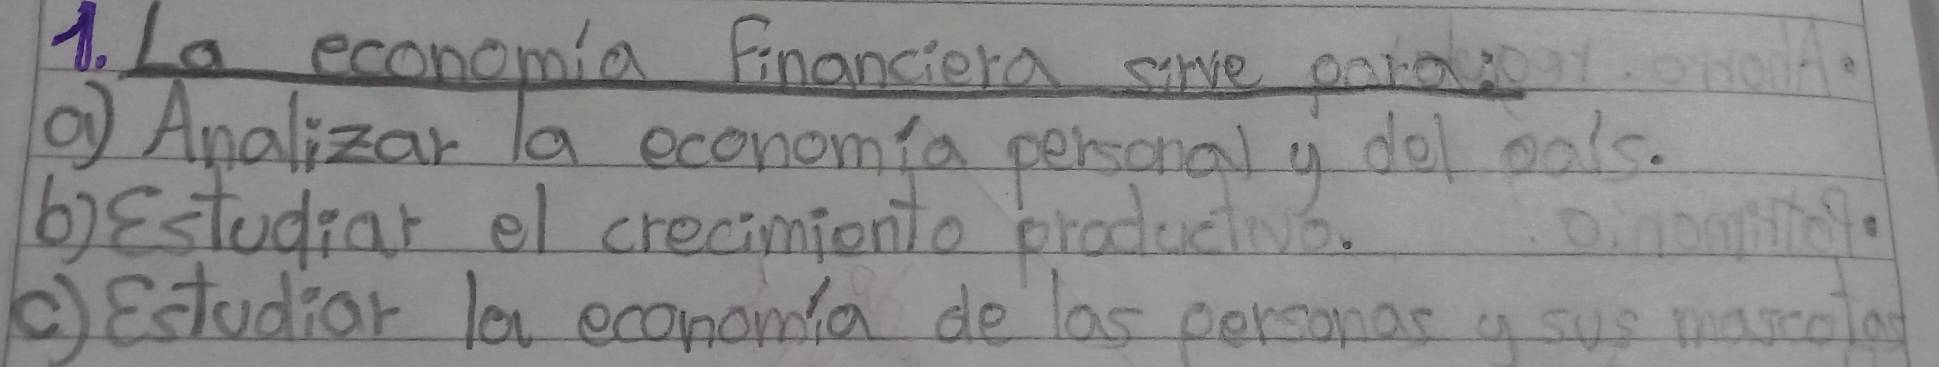 1. La economía financiera sirve para:
a) Analizar la economía personal y del país.
b) Estudiar el crecimiento productivo.
c) Estudiar la economía de las personas y sus mascotas